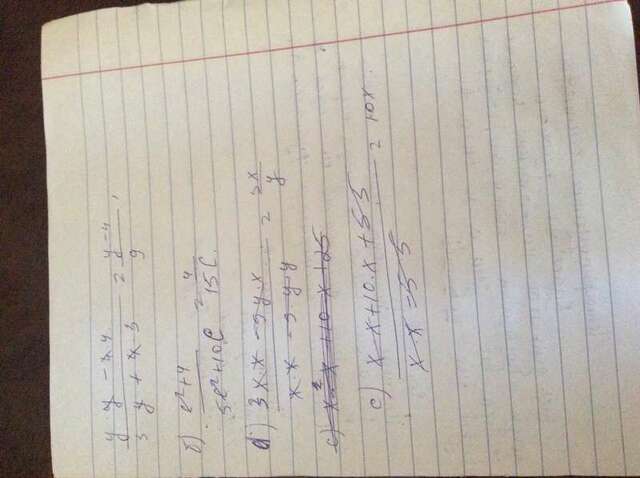 y · y - x 4 / 3 y + x 3 = y - 4 / 9
б) c²+4 / 5c²+10C = 4 / 15C.
d) 3x x - 9 y · x / x · x - 9 y · y = 3x / y
c) x² x +10 x +25
c) x x+10.x +5 5 / x x - 5 5 = 10x